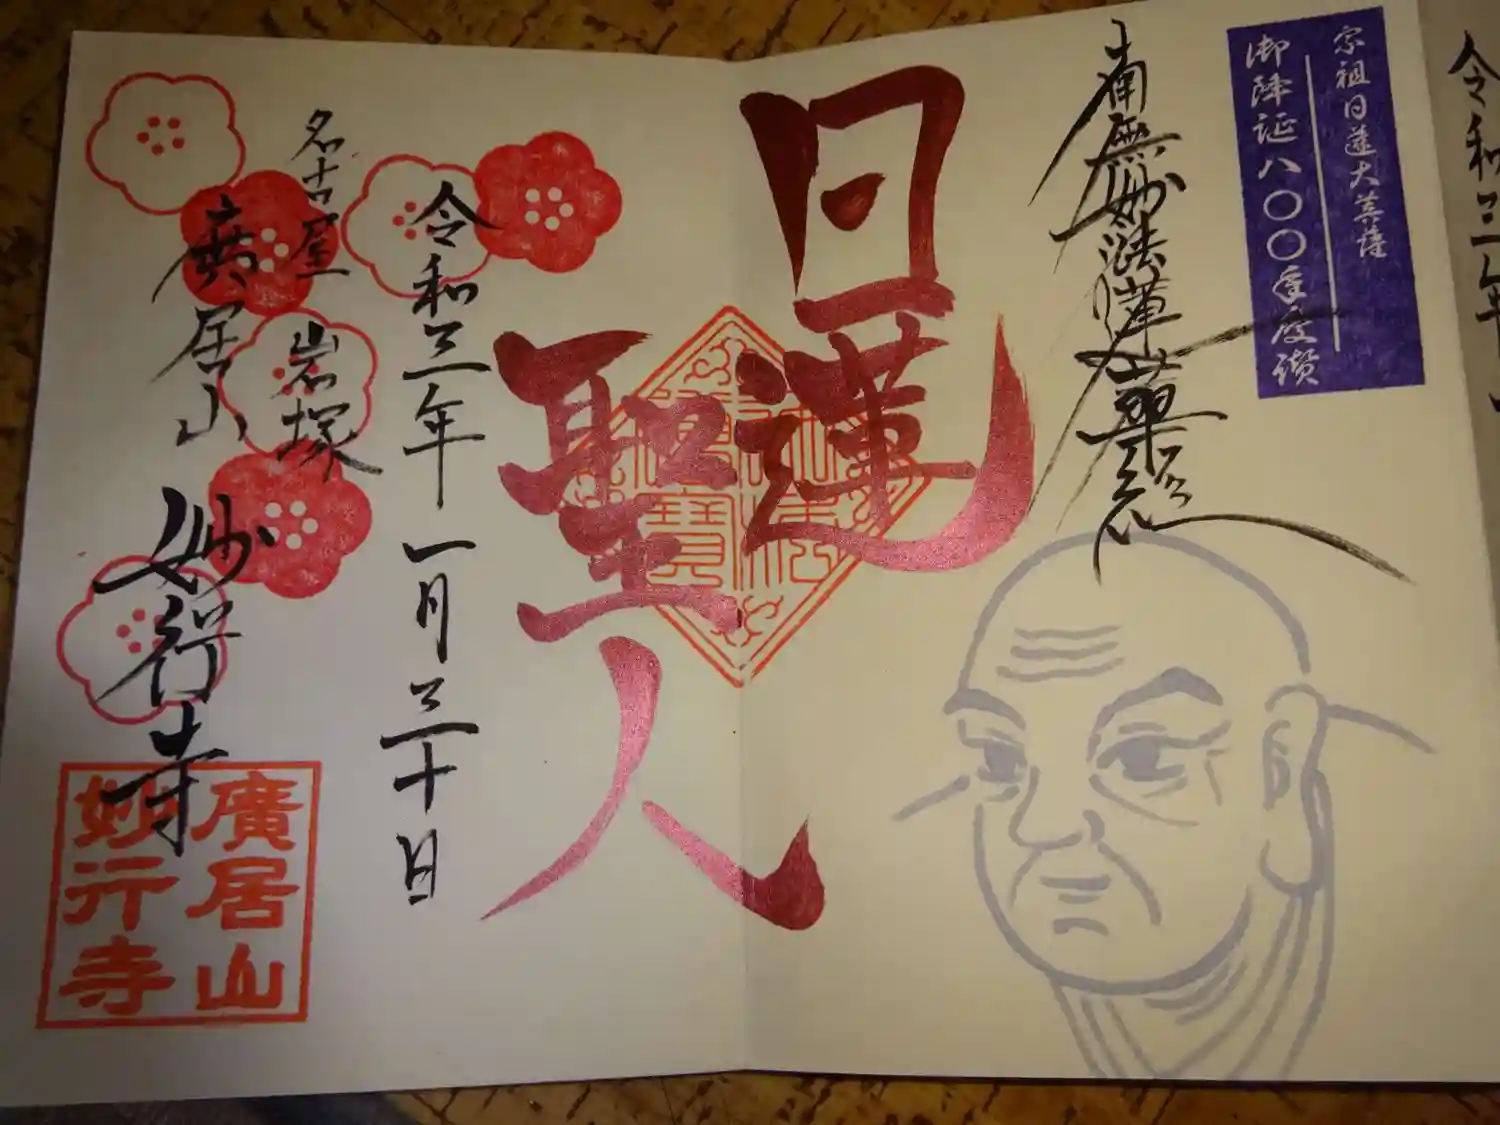 令和三年
宗祖日蓮大菩薩
御降誕八〇〇年慶讃
南無妙法蓮華経
日蓮
聖人
令和三年一月三十日
名古屋 岩塚
廣居山
妙行寺
廣居山
妙行寺